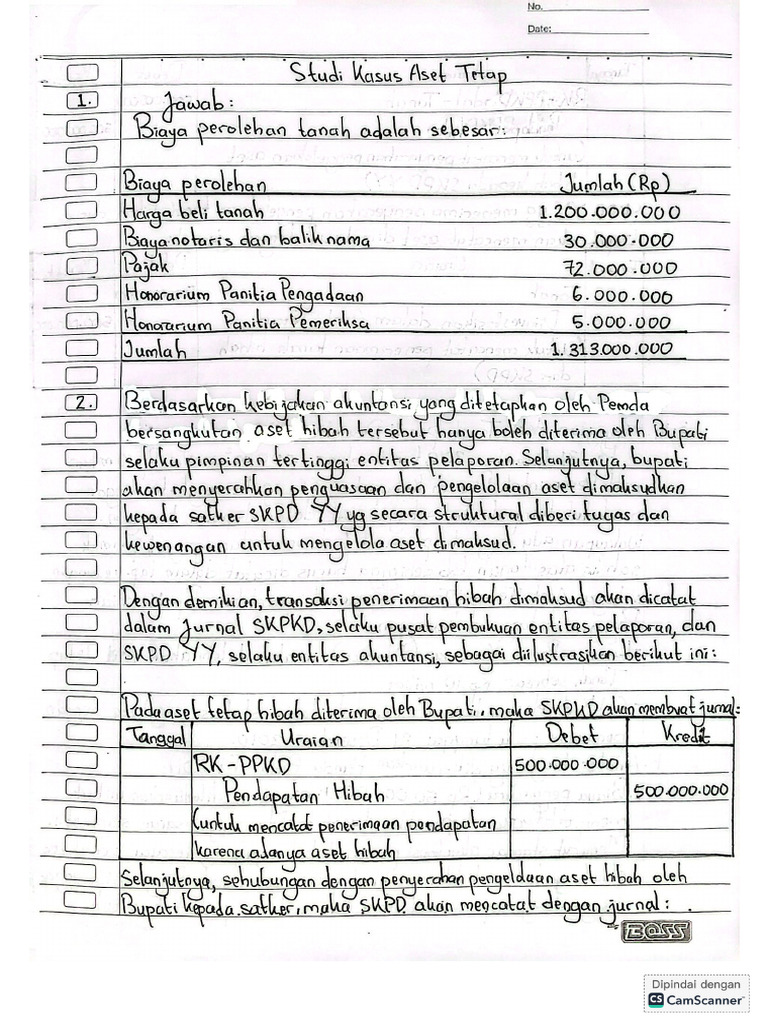 No.
Date:
Studi Kasus Aset Tetap
1. Jawab:
Biaya perolehan tanah adalah sebesar:
Biaya perolehan Jumlah (Rp)
Harga beli tanah 1.200.000.000
Biaya notaris dan balik nama 30.000.000
Pajak 72.000.000
Honorarium Panitia Pengadaan 6.000.000
Honorarium Panitia Pemeriksa 5.000.000
Jumlah 1.313.000.000
2. Berdasarkan kebijakan akuntansi yang ditetapkan oleh Pemda
bersangkutan aset hibah tersebut hanya boleh diterima oleh Bupati
selaku pimpinan tertinggi entitas pelaporan. Selanjutnya, bupati
akan menyerahkan penguasaan dan pengelolaan aset dimaksudkan
kepada satker SKPD YY yg secara struktural diberi tugas dan
kewenangan untuk mengelola aset dimaksud.
Dengan demikian, transaksi penerimaan hibah dimaksud akan dicatat
dalam jurnal SKPKD, selaku pusat pembukuan entitas pelaporan, dan
SKPD YY, selaku entitas akuntansi, sebagai diilustrasikan berikut ini:
Pada aset tetap hibah diterima oleh Bupati, maka SKPKD akan membuat jurnal:
Tanggal Uraian Debet Kredit
RK-PPKD 500.000.000
Pendapatan Hibah 500.000.000
(untuk mencatat penerimaan pendapatan
karena adanya aset hibah
Selanjutnya, sehubungan dengan penyerahan pengelolaan aset hibah oleh
Bupati kepada satker, maka SKPD akan mencatat dengan jurnal:
BOSS
Dipindai dengan
CS CamScanner